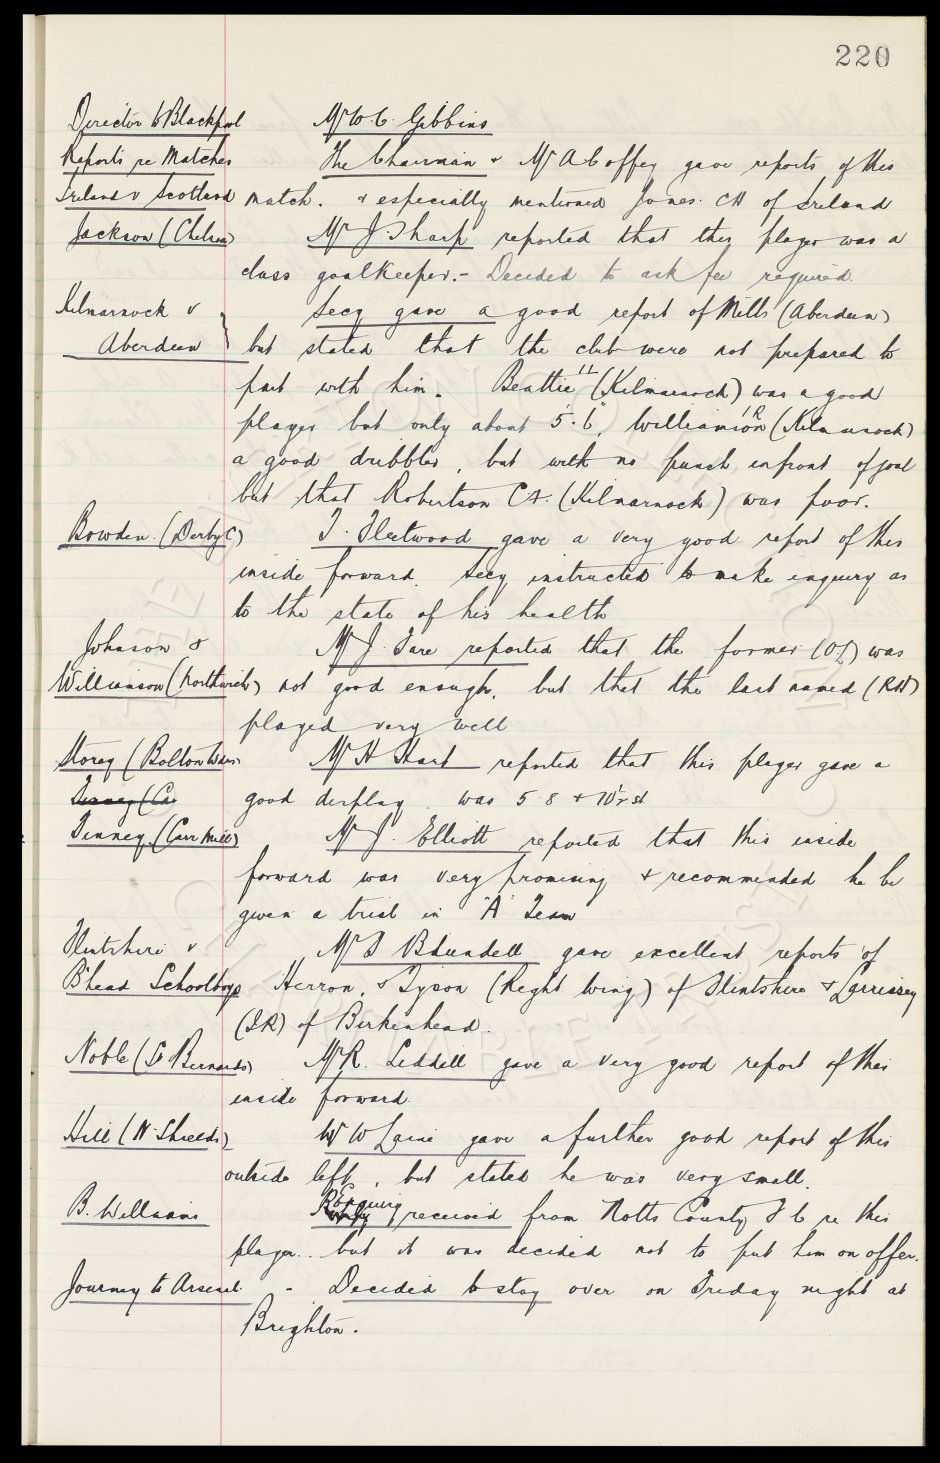 220
Director to Blackpool Mr W C. Gibbins
Reports re Matches The Chairman & Mr A Coffey gave reports of this
Ireland v Scotland match. & especially mentioned Jones. CH of Ireland
Jackson (Chelsea) Mr J. Sharp reported that this player was a
class goalkeeper. - Decided to ask fee required.
Kilmarnock v Secy gave a good report of Mills (Aberdeen)
Aberdeen but stated that the club were not prepared to
part with him. Beattie IL (Kilmarnock) was a good
player but only about 5.6". Williamson IR (Kilmarnock)
a good dribbler, but with no punch infront of goal
but that Robertson CH. (Kilmarnock) was poor.
Bowden. (Derby C) T. Fleetwood gave a very good report of this
inside forward. Secy instructed to make enquiry as
to the state of his health
Johnson & Mr J. Fare reported that the former (OL) was
Williamson (Northwich) not good enough, but that the last named (RH)
played very well
Storey (Bolton Wdrs) Mr H Hart reported that this player gave a
Tinney (Ca good display. was 5.8 & 10½ st.
Tinney (Carr Mill) Mr J. Elliott reported that this inside
forward was very promising & recommended he be
given a trial in "A" Team
Flintshire v Mr T Blundell gave excellent reports of
B'head Schoolboys Herron, & Tyson (Right Wing) of Flintshire & Larrissey
(IR) of Birkenhead.
Noble (St Bernards) Mr R. Liddell gave a very good report of this
inside forward.
Hill (N. Shields) W W Laine gave a further good report of this
outside left, but stated he was very small.
B. Williams Enquiry received from Notts County F C re this
player.. but it was decided not to put him on offer.
Journey to Arsenal. - Decided to stay over on Friday night at
Brighton.